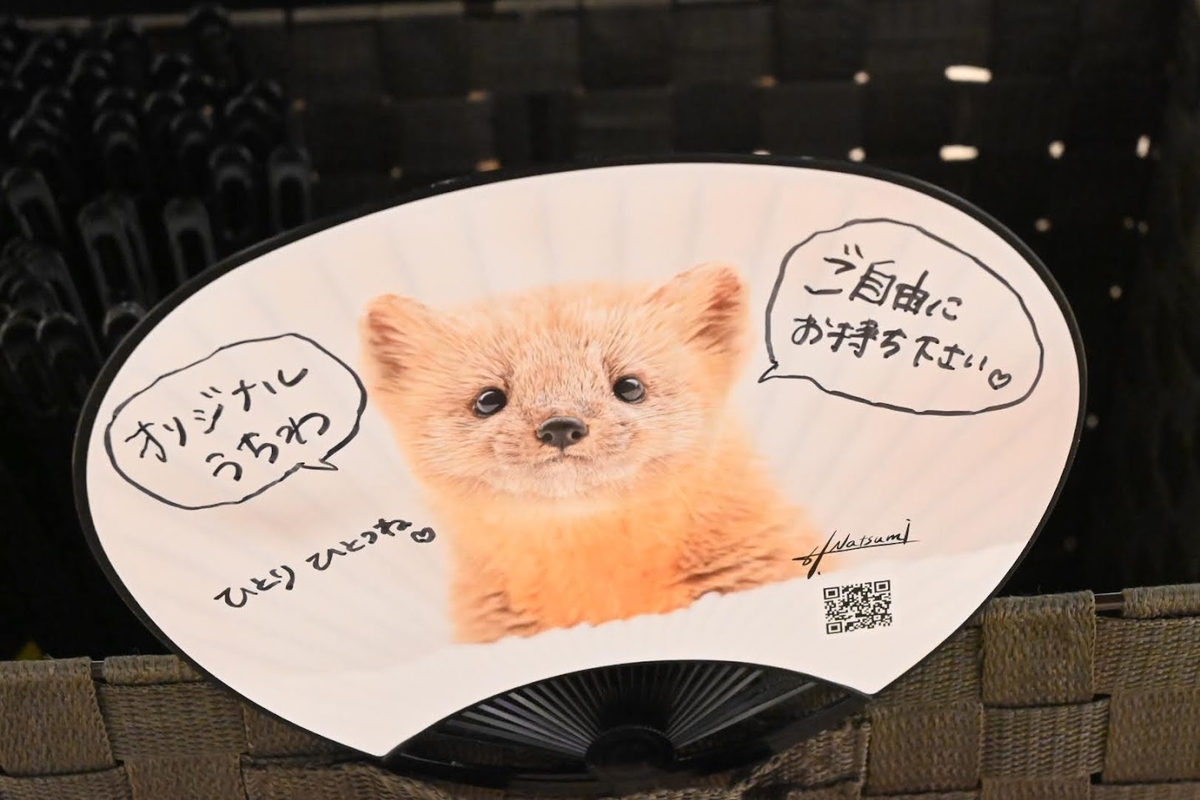 オリジナル
うちわ
ご自由に
お持ち下さい♡
ひとり ひとつね♡
H.Natsumi